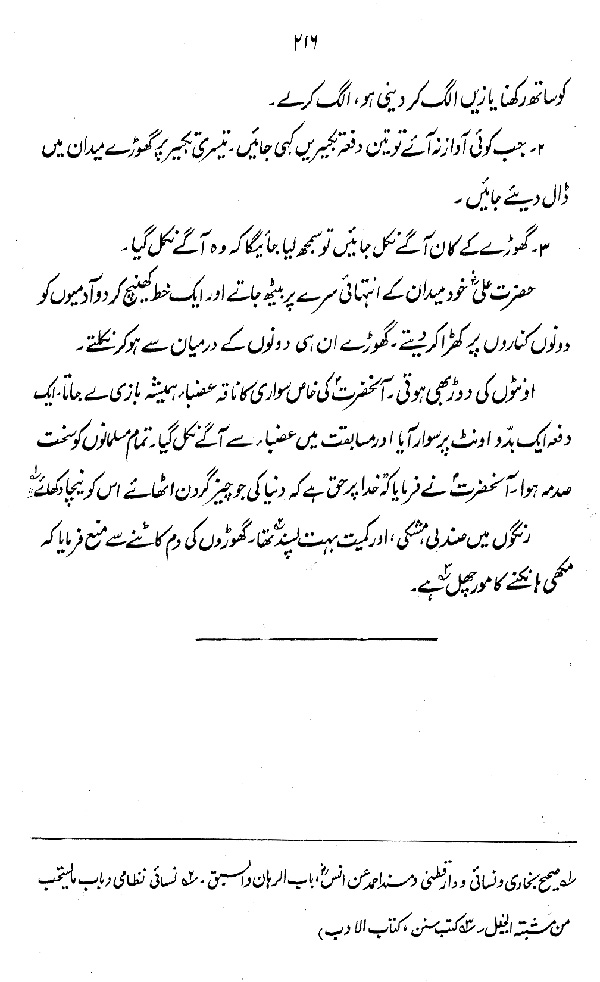 ۲۱۶
کو ساتھ رکھنا یا زین الگ کر دینی ہو، الگ کرلے۔
۲۔ جب کوئی آواز نہ آئے تو تین دفعہ تکبیریں کہی جائیں۔ تیسری تکبیر پر گھوڑے میدان میں
ڈال دیئے جائیں۔
۳۔ گھوڑے کے کان آگے نکل جائیں تو سمجھ لیا جائیگا کہ وہ آگے نکل گیا۔
حضرت علیؓ خود میدان کے انتہائی سرے پر بیٹھ جاتے اور ایک خط کھینچ کر دو آدمیوں کو
دونوں کناروں پر کھڑا کر دیتے۔ گھوڑے ان ہی دونوں کے درمیان سے ہو کر نکلتے۔
اونٹوں کی دوڑ بھی ہوتی۔ آنحضرتؐ کی خاص سواری کا ناقہ عضباء ہمیشہ بازی لے جاتا، ایک
دفعہ ایک بدّو اونٹ پر سوار آیا اور مسابقت میں عضباء سے آگے نکل گیا۔ تمام مسلمانوں کو سخت
صدمہ ہوا۔ آنحضرتؐ نے فرمایا کہ خدا پر حق ہے کہ دنیا کی جو چیز گردن اٹھائے اس کو نیچا دکھائے۱؎
رنگوں میں صندلی، مشکی، اور کمیت بہت پسند۲؎ تھا۔ گھوڑوں کی دم کاٹنے سے منع فرمایا کہ
مکھی ہانکنے کا مورچھل۳؎ ہے۔
۱؎ صحیح بخاری و نسائی و دارقطنی و مسند احمد عن انسؓ، باب الرہان والسبق۔ ۲؎ نسائی نظامی در باب مایستحب
من مشیتہ الخیل۔ ۳؎ کتب سنن، کتاب الادب)